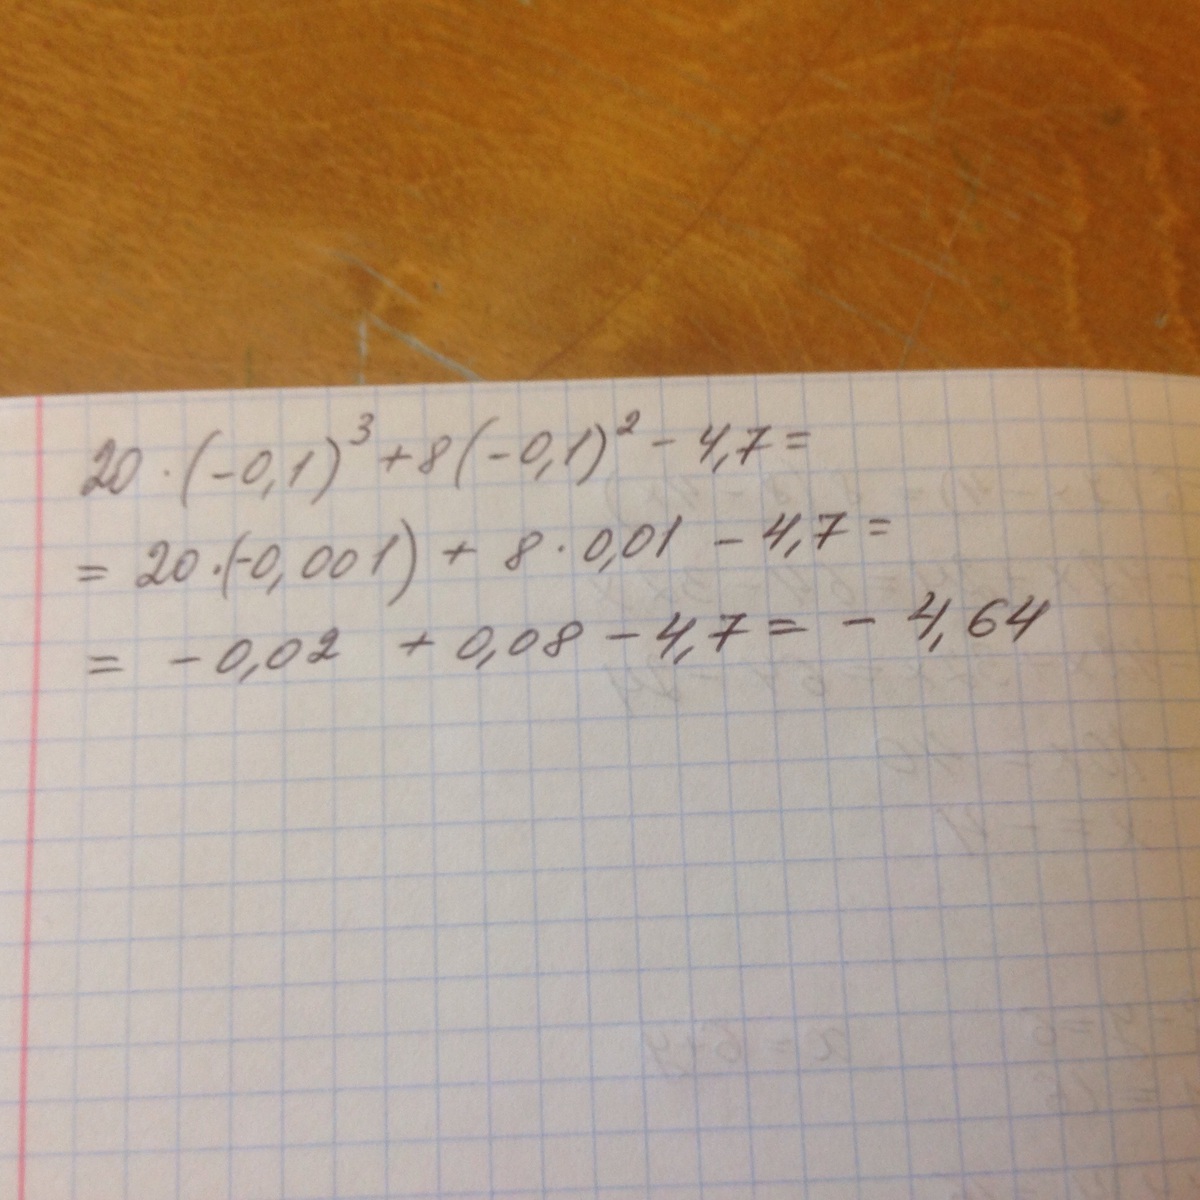 20·(-0,1)³+8(-0,1)²-4,7=
= 20·(-0,001) + 8·0,01 - 4,7=
= -0,02 + 0,08 - 4,7= - 4,64